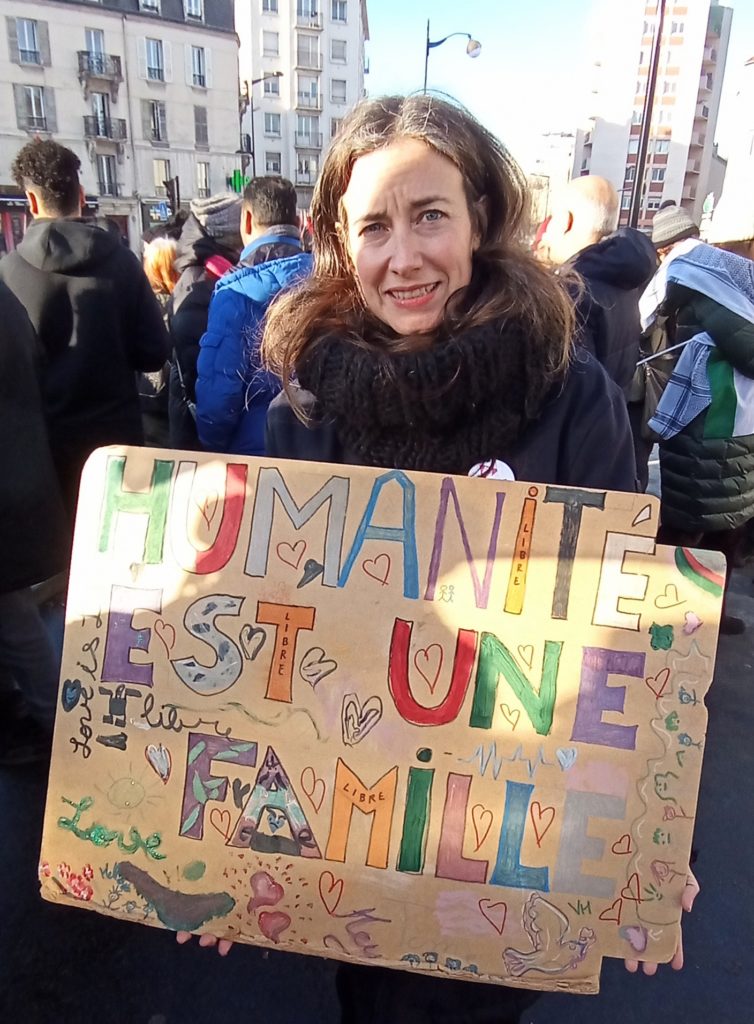 HUMANITÉ
LIBRE
EST UNE
LIBRE
Love is
libre
FAMILLE
LIBRE
Love
VH